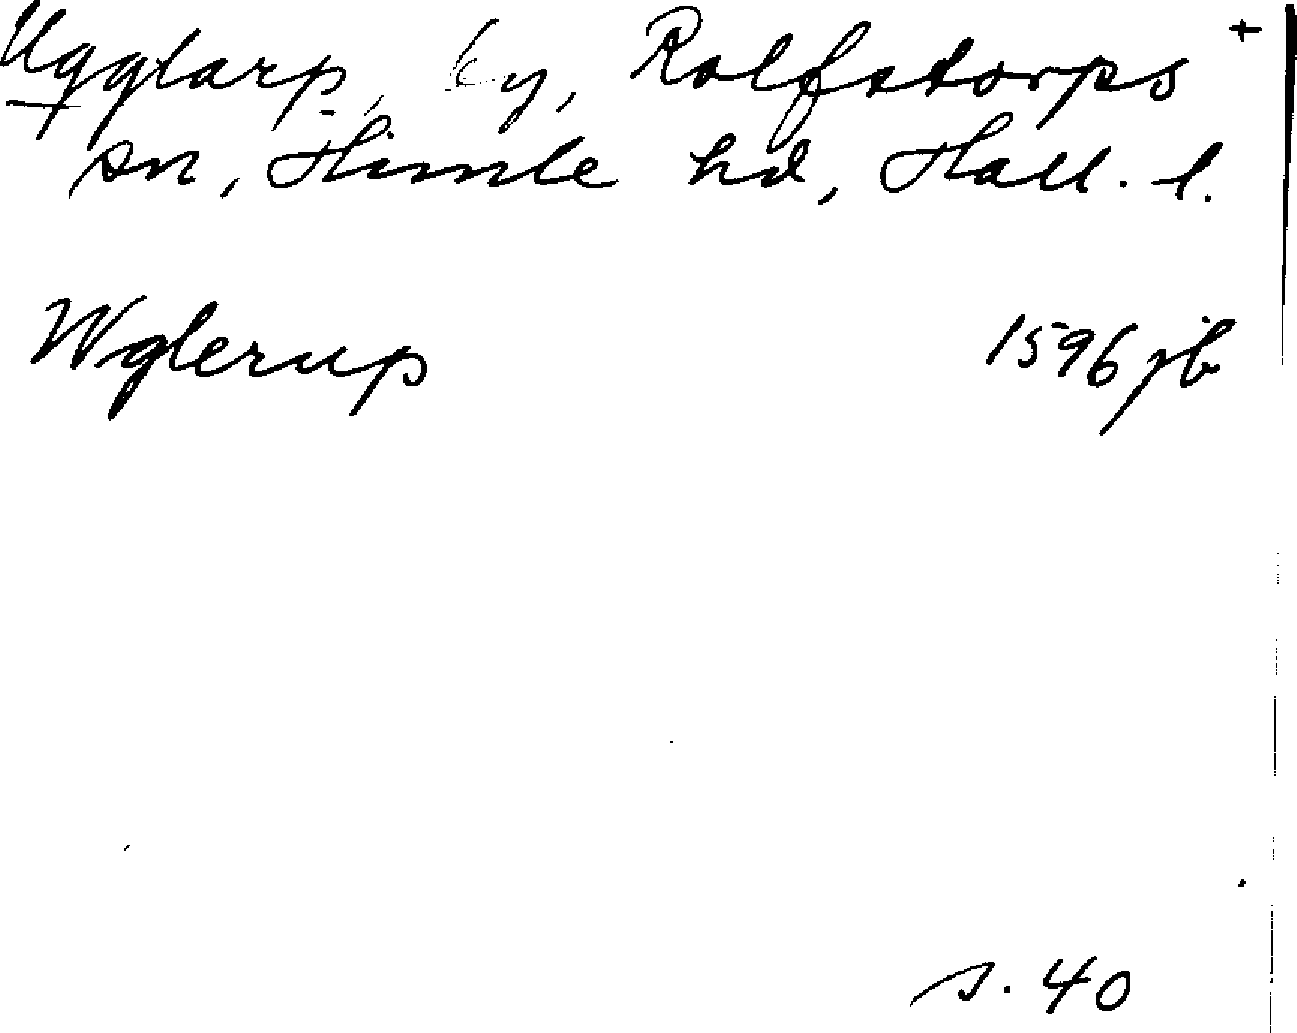 Ugglarp, by, Rolfstorps +
sn, Himle hd, Hall. l.
Wglerup 1596 jb
s. 40